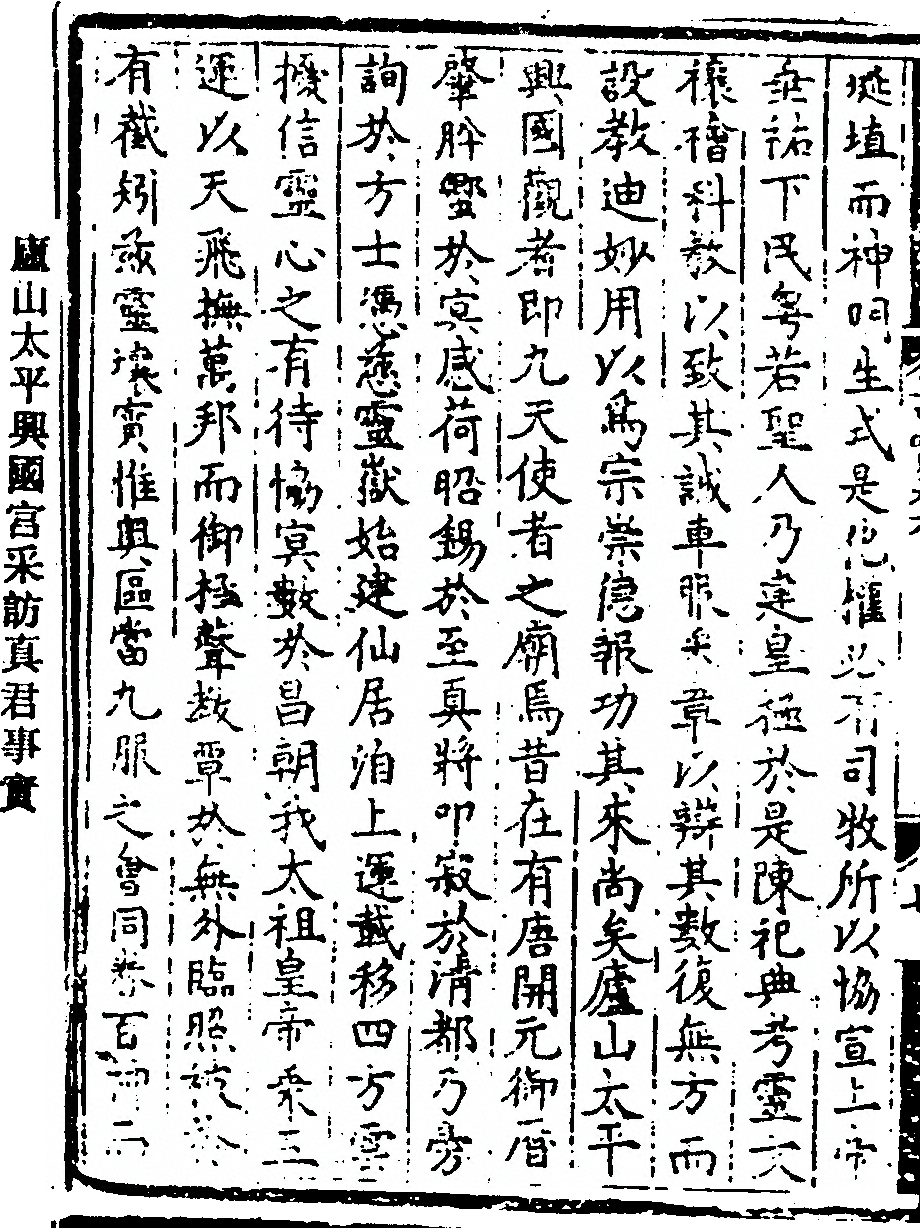 埏埴而神明生式是化權必有司牧所以協宣上帝
垂祐下民粵若聖人乃建皇極於是陳祀典考靈文
禳禬科教以致其誠車服采章以辯其數復無方而
設教迪妙用以為宗崇德報功其來尚矣廬山太平
興國觀者即九天使者之廟焉昔在有唐開元御曆
肇肸蠁於冥感荷昭錫於至真將叩寂於清都乃旁
詢於方士憑慈靈嶽始建仙居洎上運載移四方雲
擾信靈心之有待協冥數於昌朝我太祖皇帝乘三
運以天飛撫萬邦而御極聲教覃於無外臨照被於
有截矧茲靈壤實惟輿區當九服之會同 百神
廬山太平興國宮采訪真君事實